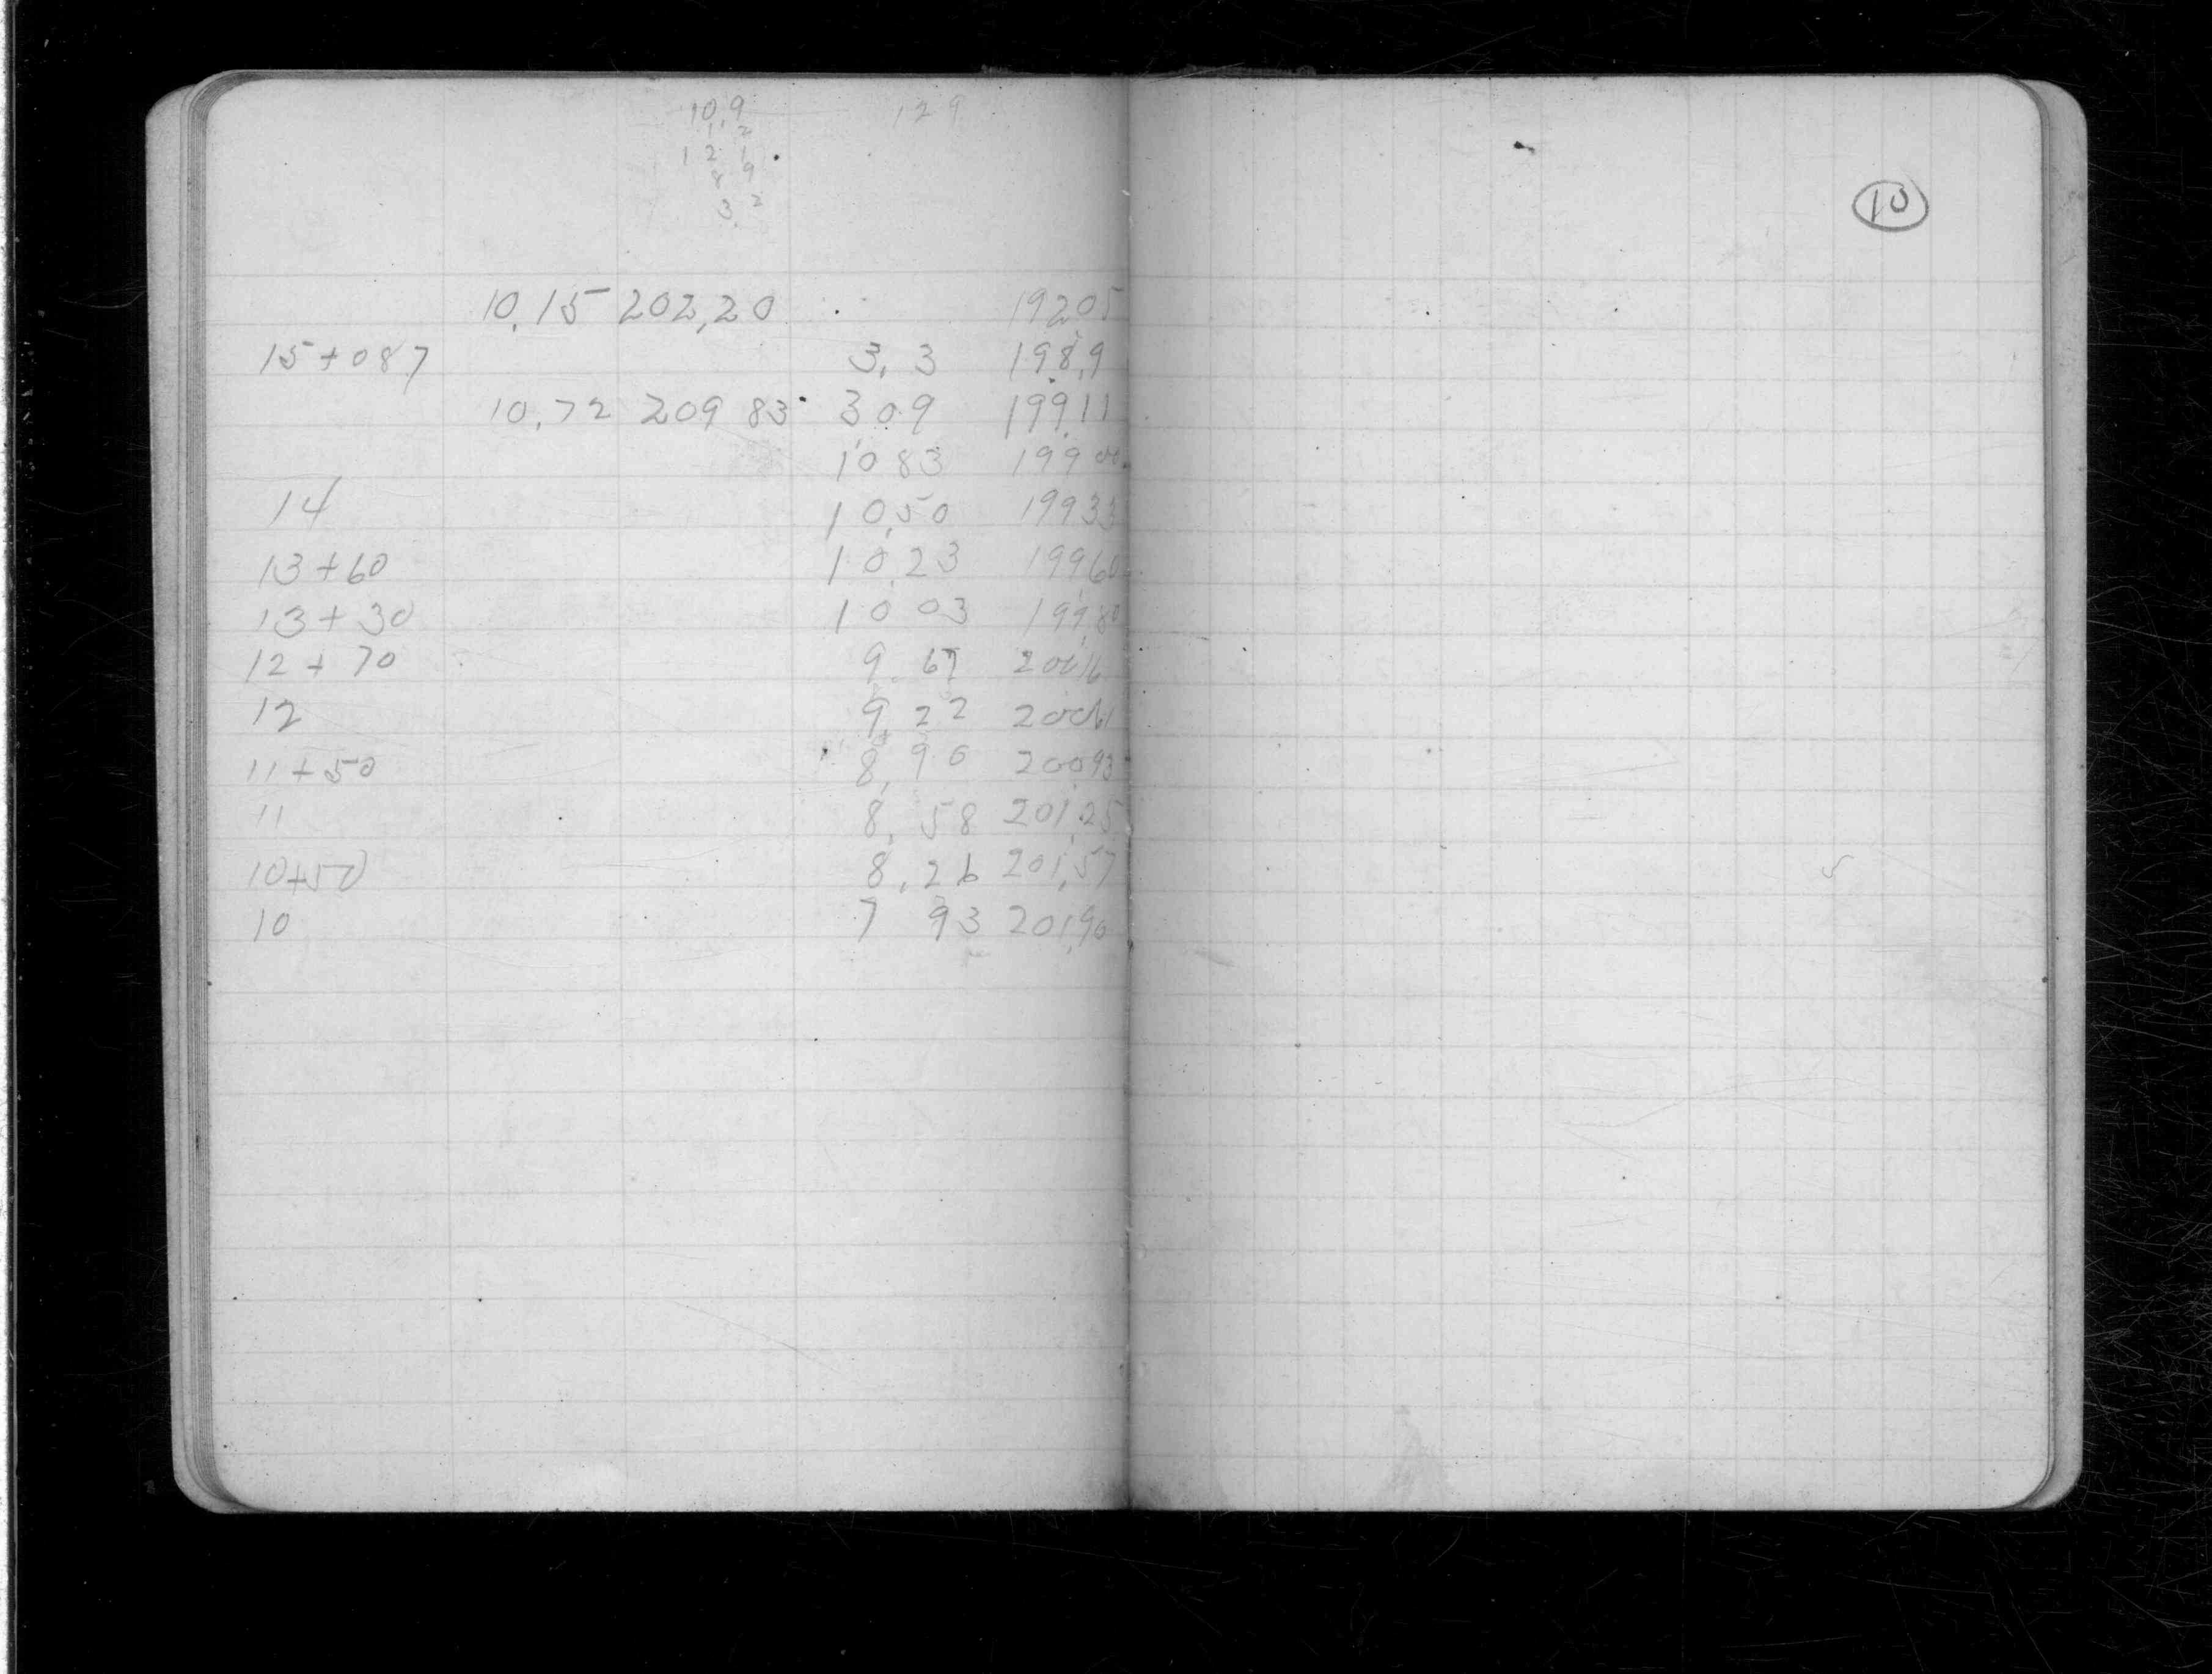 10,9
129
1,2
121
89
32
10
10,15 202,20 19205
15+087 3,3 198,9
10,72 209 83 309 199,11
10 83 199 00
14 10,50 199 33
13+60 10,23 199 60
13+30 10 03 199,80
12+70 9.67 200,16
12 9,22 200,61
11+50 8,90 200 93
11 8,58 201,25
10+50 8,26 201,57
5
10 7 93 201,90